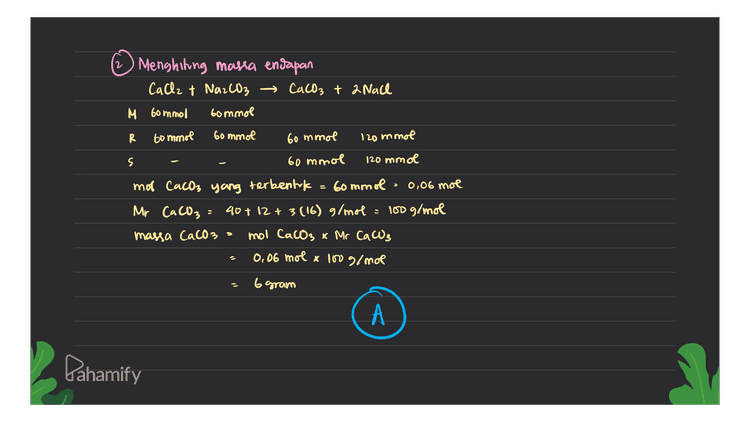 2 Menghitung massa endapan
CaCl2 + Na2CO3 → CaCO3 + 2NaCl
M 60 mmol 60 mmol
R 60 mmol 60 mmol 60 mmol 120 mmol
S - - 60 mmol 120 mmol
mol CaCO3 yang terbentuk = 60 mmol = 0,06 mol
Mr CaCO3 = 40 + 12 + 3(16) g/mol = 100 g/mol
massa CaCO3 = mol CaCO3 x Mr CaCO3
= 0,06 mol x 100 g/mol
= 6 gram
A
Pahamify